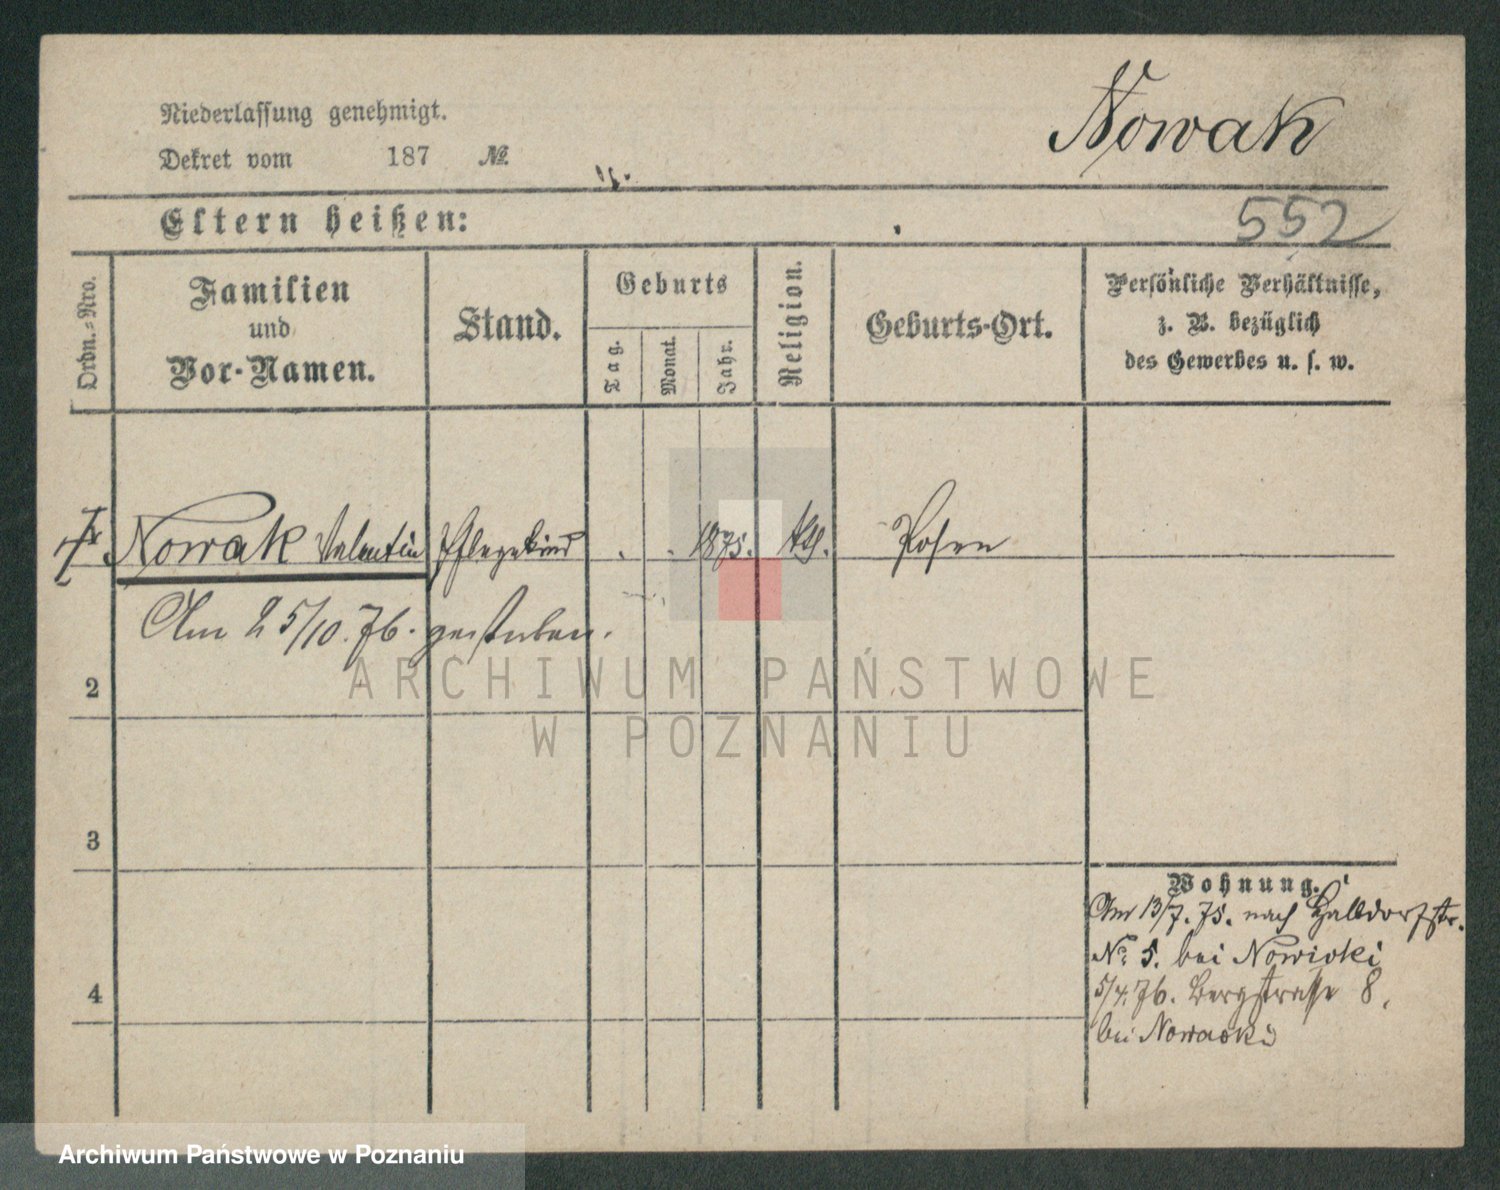 Niederlassung genehmigt.
Nowak
Dekret vom 187 №.
Eltern heißen:
552
Ordn.-Nro.
Familien
und
Vor-Namen.
Stand.
Geburts
Tag.
Monat.
Jahr.
Religion.
Geburts-Ort.
Persönliche Verhältnisse,
z. B. bezüglich
des Gewerbes u. s. w.
Nowak Valentin Pflegekind 1875. Posen
Am 25/10. 76. gestorben.
2
3
4
Wohnung.
Am 13/7. 75. nach Halldorfstr.
No 5. bei Nowicki
5/4. 76. Bergstrasse 8,
bei Nowacki
ARCHIWUM PAŃSTWOWE
W POZNANIU
Archiwum Państwowe w Poznaniu